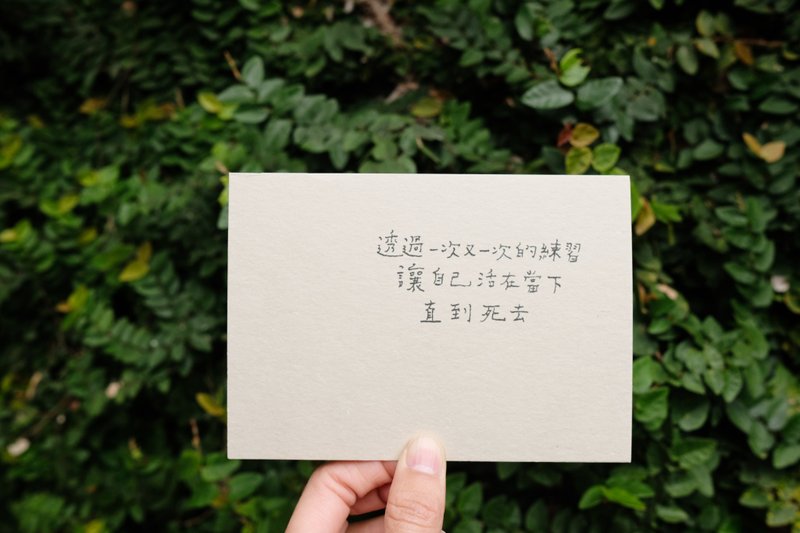 透過一次又一次的練習
讓自己活在當下
直到死去